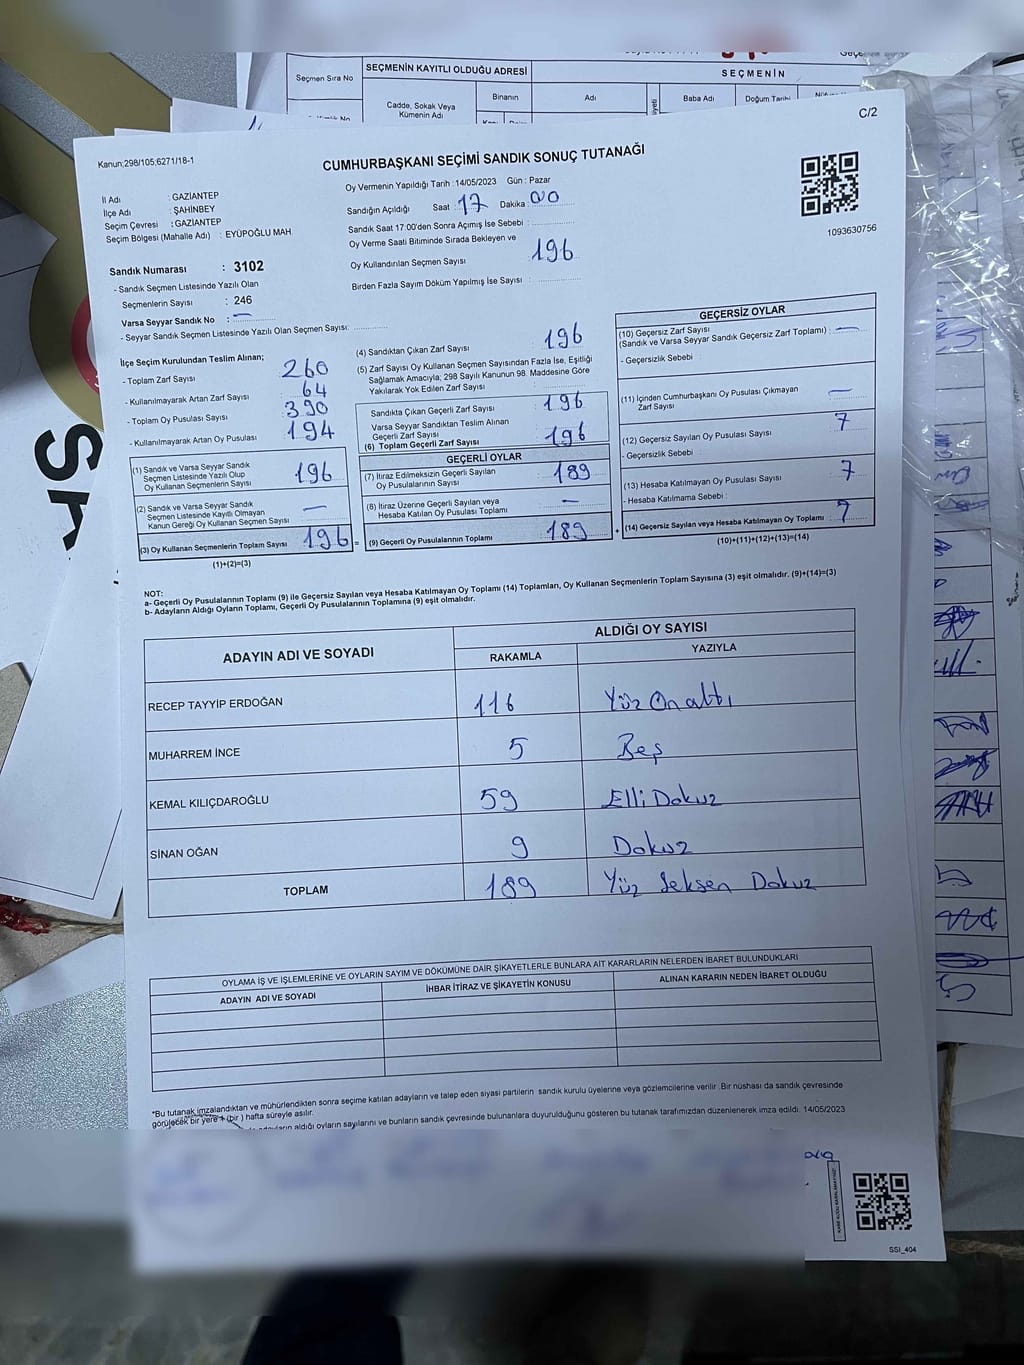 SEÇMENİN KAYITLI OLDUĞU ADRESİ
SEÇMENİN
Seçmen Sıra No
Cadde, Sokak Veya
Kümenin Adı
Binanın
Adı
Baba Adı
Doğum Tarihi
C/2
Kanun;298/105,6271/18-1
CUMHURBAŞKANI SEÇİMİ SANDIK SONUÇ TUTANAĞI
İl Adı : GAZİANTEP
İlçe Adı : ŞAHİNBEY
Seçim Çevresi : GAZİANTEP
Seçim Bölgesi (Mahalle Adı) : EYÜPOĞLU MAH.
Oy Vermenin Yapıldığı Tarih :14/05/2023 Gün : Pazar
Sandığın Açıldığı Saat : 17 Dakika : 00
Sandık Saat 17:00'den Sonra Açımış İse Sebebi :
Oy Verme Saati Bitiminde Sırada Bekleyen ve
Oy Kullandırılan Seçmen Sayısı 196
Birden Fazla Sayım Döküm Yapılmış İse Sayısı :
1093630756
Sandık Numarası : 3102
- Sandık Seçmen Listesinde Yazılı Olan
Seçmenlerin Sayısı : 246
Varsa Seyyar Sandık No : —
- Seyyar Sandık Seçmen Listesinde Yazılı Olan Seçmen Sayısı:
İlçe Seçim Kurulundan Teslim Alınan;
- Toplam Zarf Sayısı 260
- Kullanılmayarak Artan Zarf Sayısı 64
- Toplam Oy Pusulası Sayısı 390
- Kullanılmayarak Artan Oy Pusulası 194
(1) Sandık ve Varsa Seyyar Sandık
Seçmen Listesinde Yazılı Olup
Oy Kullanan Seçmenlerin Sayısı 196
(2) Sandık ve Varsa Seyyar Sandık
Seçmen Listesinde Kayıtlı Olmayan
Kanun Gereği Oy Kullanan Seçmen Sayısı —
(3) Oy Kullanan Seçmenlerin Toplam Sayısı 196 =
(1)+(2)=(3)
(4) Sandıktan Çıkan Zarf Sayısı 196
(5) Zarf Sayısı Oy Kullanan Seçmen Sayısından Fazla İse, Eşitliği
Sağlamak Amacıyla; 298 Sayılı Kanunun 98. Maddesine Göre
Yakılarak Yok Edilen Zarf Sayısı
Sandıkta Çıkan Geçerli Zarf Sayısı 196
Varsa Seyyar Sandıktan Teslim Alınan
Geçerli Zarf Sayısı
(6) Toplam Geçerli Zarf Sayısı 196
GEÇERLİ OYLAR
(7) İtiraz Edilmeksizin Geçerli Sayılan
Oy Pusulalarının Sayısı 189
(8) İtiraz Üzerine Geçerli Sayılan veya
Hesaba Katılan Oy Pusulası Toplamı —
(9) Geçerli Oy Pusulalarının Toplamı 189 +
GEÇERSİZ OYLAR
(10) Geçersiz Zarf Sayısı
(Sandık ve Varsa Seyyar Sandık Geçersiz Zarf Toplamı) : —
- Geçersizlik Sebebi
(11) İçinden Cumhurbaşkanı Oy Pusulası Çıkmayan
Zarf Sayısı —
(12) Geçersiz Sayılan Oy Pusulası Sayısı 7
- Geçersizlik Sebebi
(13) Hesaba Katılmayan Oy Pusulası Sayısı 7
- Hesaba Katılmama Sebebi :
(14) Geçersiz Sayılan veya Hesaba Katılmayan Oy Toplamı 7
(10)+(11)+(12)+(13)=(14)
NOT:
a- Geçerli Oy Pusulalarının Toplamı (9) ile Geçersiz Sayılan veya Hesaba Katılmayan Oy Toplamı (14) Toplamları, Oy Kullanan Seçmenlerin Toplam Sayısına (3) eşit olmalıdır. (9)+(14)=(3)
b- Adayların Aldığı Oyların Toplamı, Geçerli Oy Pusulalarının Toplamına (9) eşit olmalıdır.
ADAYIN ADI VE SOYADI
ALDIĞI OY SAYISI
RAKAMLA
YAZIYLA
RECEP TAYYİP ERDOĞAN 116 Yüz On altı
MUHARREM İNCE 5 Beş
KEMAL KILIÇDAROĞLU 59 Elli Dokuz
SİNAN OĞAN 9 Dokuz
TOPLAM 189 Yüz Seksen Dokuz
OYLAMA İŞ VE İŞLEMLERİNE VE OYLARIN SAYIM VE DÖKÜMÜNE DAİR ŞİKAYETLERLE BUNLARA AİT KARARLARIN NELERDEN İBARET BULUNDUKLARI
ADAYIN ADI VE SOYADI
İHBAR İTİRAZ VE ŞİKAYETİN KONUSU
ALINAN KARARIN NEDEN İBARET OLDUĞU
*Bu tutanak imzalandıktan ve mühürlendikten sonra seçime katılan adayların ve talep eden siyasi partilerin sandık kurulu üyelerine veya gözlemcilerine verilir .Bir nüshası da sandık çevresinde
görülecek bir yere (bir ) hafta süreyle asılır.
aldığı oyların sayılarını ve bunların sandık çevresinde bulunanlara duyurulduğunu gösteren bu tutanak tarafımızdan düzenlenerek imza edildi. 14/05/2023
SSI_404